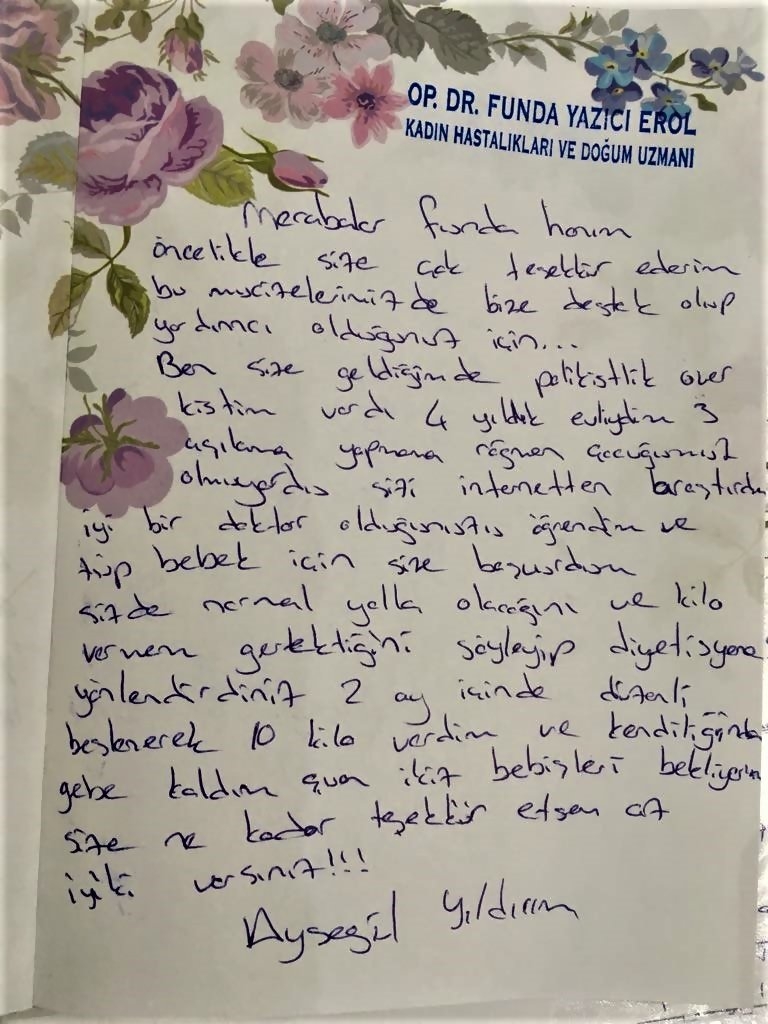 OP. DR. FUNDA YAZICI EROL
KADIN HASTALIKLARI VE DOĞUM UZMANI
Merabalar funda hanım
öncelikle size çok teşekkür ederim
bu mucizelerimizde bize destek olup
yardımcı olduğunuz için...
Ben size geldiğimde polikistlik over
kistim vardı 4 yıldık evliydim 3
aşılama yapmama rağmen çocuğumuz
olmuyordu sizi internetten araştırdım
iyi bir doktor olduğunuzu öğrendim ve
tüp bebek için size başvurdum
sizde normal yolla olacağını ve kilo
vermem gerektiğini söyleyip diyetisyene
yönlendirdiniz 2 ay içinde düzenli
beslenerek 10 kilo verdim ve kendiliğinden
gebe kaldım şuan ikiz bebişleri bekliyorum
size ne kadar teşekkür etsem az
iyiki varsınız!!!
Ayşegül Yıldırım